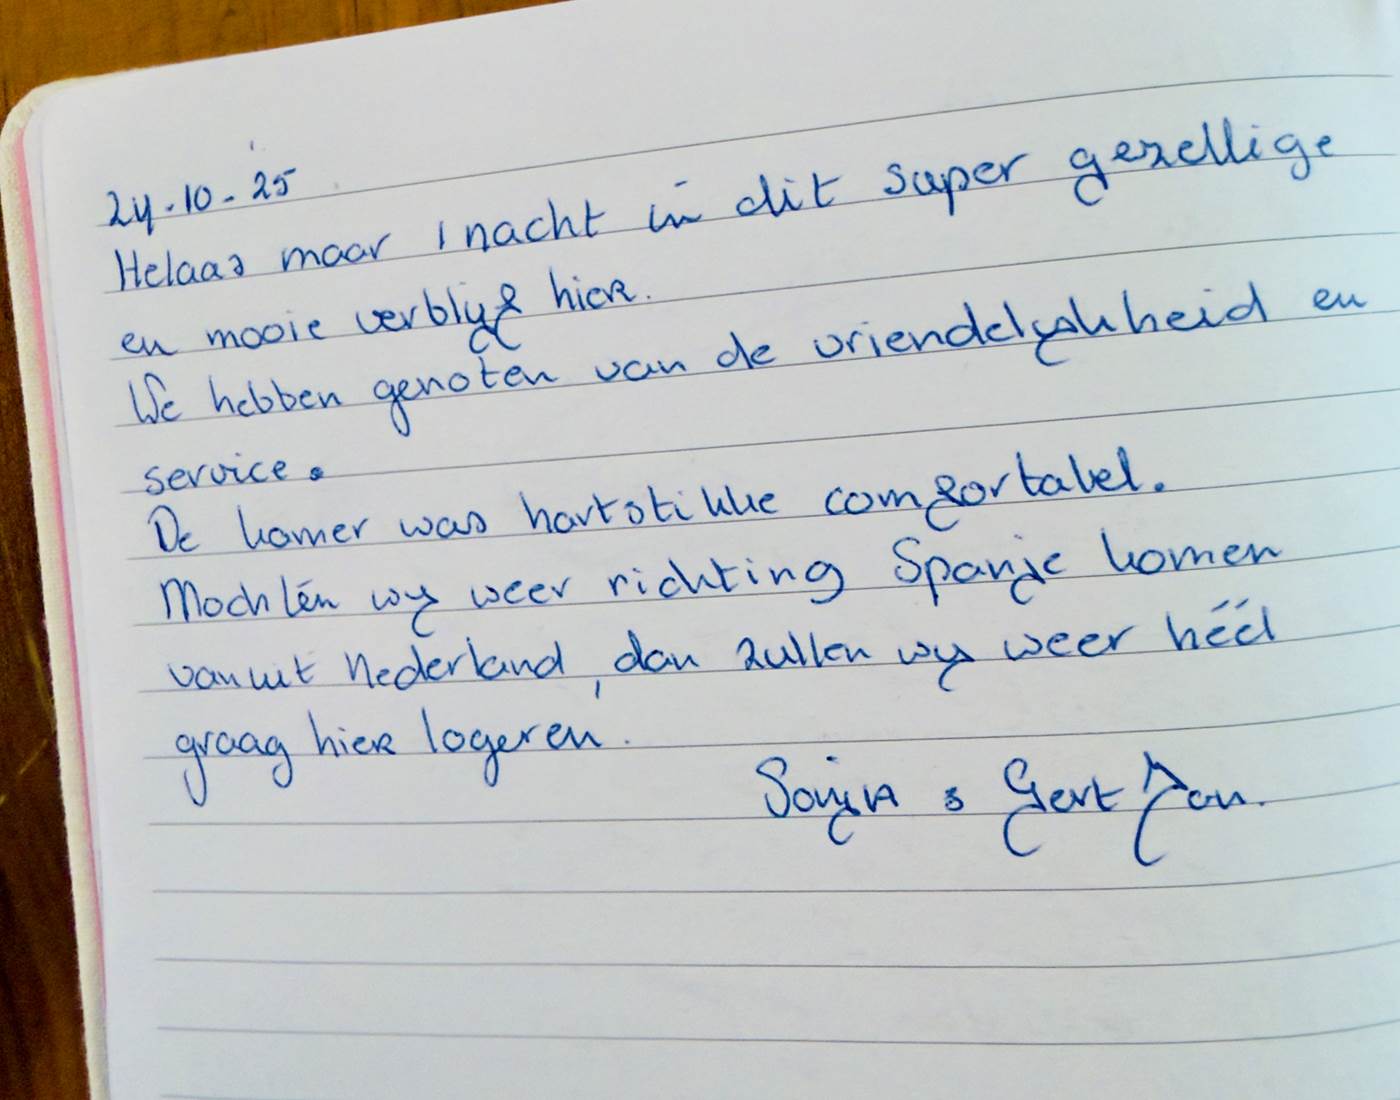 24.10-'25
Helaas maar 1 nacht in dit super gezellige
en mooie verblijf hier.
We hebben genoten van de vriendelijkheid en
service.
De kamer was hartstikke comfortabel.
Mochten wij weer richting Spanje komen
vanuit Nederland, dan zullen wij weer héél
graag hier logeren.
Sonja & Gert Jan.